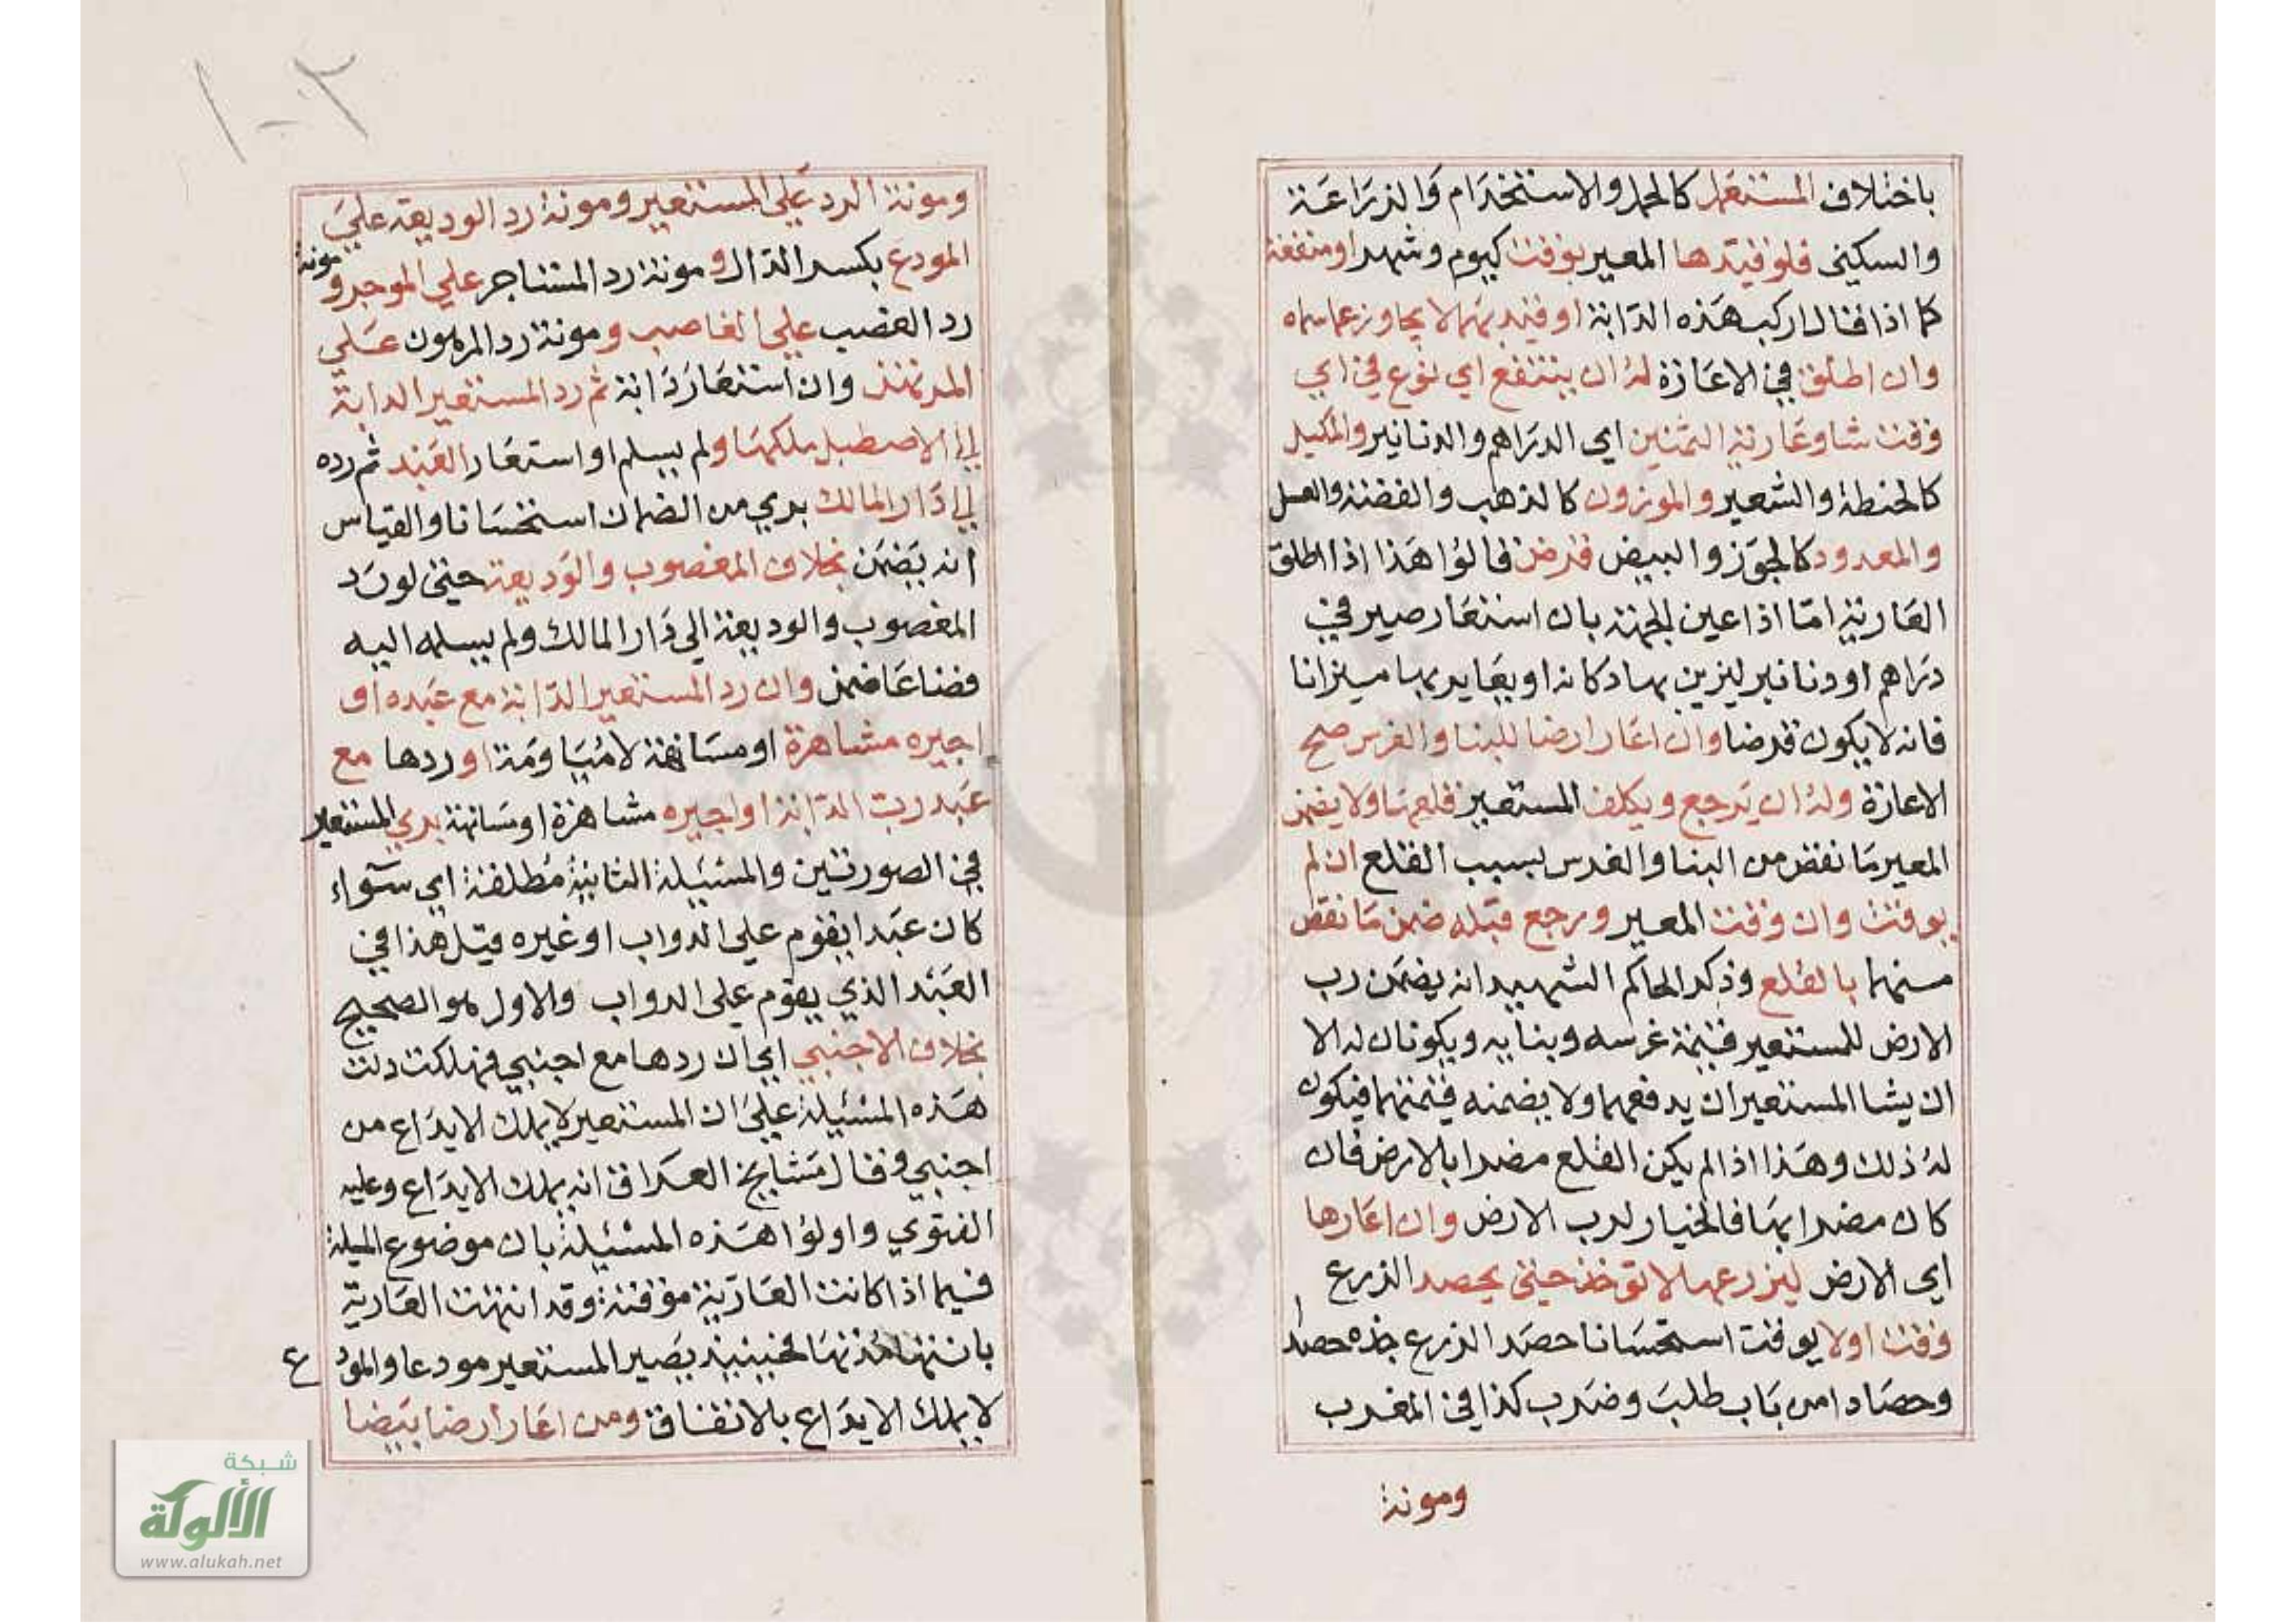 باختلاف المستعمل كالحمل والاستخدام والزراعة
والسكني فلو قيدها المعير بوقت كيوم وشهر او منفعة
كما اذا قال اركب هذه الدابة او قيد بهما لا يجاوز عما سماه
وان اطلق في الاعارة له ان ينتفع اي نوع في اي
وقت شا وعارية الثمنين اي الدراهم والدنانير والمكيل
كالحنطة والشعير والموزون كالذهب والفضة والعسل
والمعدود كالجوز والبيض قرض قالوا هذا اذا اطلق
العارية اما اذا عين الجهة بان استعار صيرفي
دراهم او دنانير ليزين بها دكانه او يعاير بها ميزانا
فانه لا يكون قرضا وان اعار ارضا للبنا والغرس صح
الاعارة وله ان يرجع ويكلف المستعير قلعهما ولا يضمن
المعير ما نقض من البنا والغرس بسبب القلع ان لم
يوقت وان وقت المعير ورجع قبله ضمن ما نقض
منهما بالقلع وذكر الحاكم الشهيد انه يضمن رب
الارض للمستعير قيمة غرسه وبنايه ويكونان له الا
ان يشا المستعير ان يدفعهما ولا يضمنه قيمتهما فيكون
له ذلك وهذا اذا لم يكن القلع مضرا بالارض فان
كان مضرا بها فالخيار لرب الارض وان اعارها
اي الارض ليزرعها لا توخذ حتى يحصد الزرع
وقت اولا يوقت استحسانا حصد الزرع جذه حصدا
وحصادا من باب طلب وضرب كذا في المغرب
ومونة
٢-١
ومونة الرد علي المستعير ومونة رد الوديعة علي
المودع بكسر الدال ومونة رد المستاجر علي الموجر ومونة
رد الغصب علي الغاصب ومونة رد المرهون علي
المرتهن وان استعار دابة ثم رد المستعير الدابة
الي الاصطبل ملكها ولم يسلم او استعار العبد ثم رده
الي دار المالك بري من الضمان استحسانا والقياس
انه يضمن بخلاف المغصوب والوديعة حتى لو رد
المغصوب والوديعة الي دار المالك ولم يسلمه اليه
فضاعا ضمن وان رد المستعير الدابة مع عبده او
اجيره مشاهرة او مسانهة لا مياومة او ردها مع
عبد رب الدابة او اجيره مشاهرة او مسانهة بري المستعير
في الصورتين والمسئيلة الثانية مطلقة اي سوآء
كان عبدا يقوم علي الدواب او غيره قيل هذا في
العبد الذي يقوم علي الدواب والاول هو الصحيح
بخلاف الاجنبي اي ان ردها مع اجنبي فهلكت دلت
هذه المسئيلة علي ان المستعير لا يملك الايداع من
اجنبي وقال مشايخ العراق انه يملك الايداع وعليه
الفتوي واولوا هذه المسئيلة بان موضوع المسيلة
فيما اذا كانت العارية موقتة وقد انتهت العارية
بانتها مدتها فحينيذ يصير المستعير مودعا والمودع
لا يملك الايداع بالاتفاق ومن اعار ارضا بيضا
شبكة
الألوكة
www.alukah.net